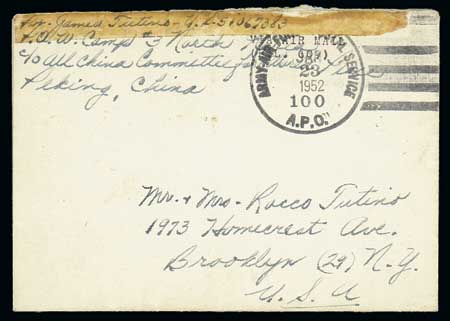 James Tutino - U.S. 51067383
P.O.W. Camp #3 North
c/o All China Committee for
Peking, China
AIR MAIL
ARMY-AIR FORCE POSTAL SERVICE
23
1952
100
A.P.O.
Mr. & Mrs. Rocco Tutino
1973 Homecrest Ave.
Brooklyn (29) N.Y.
U.S.A